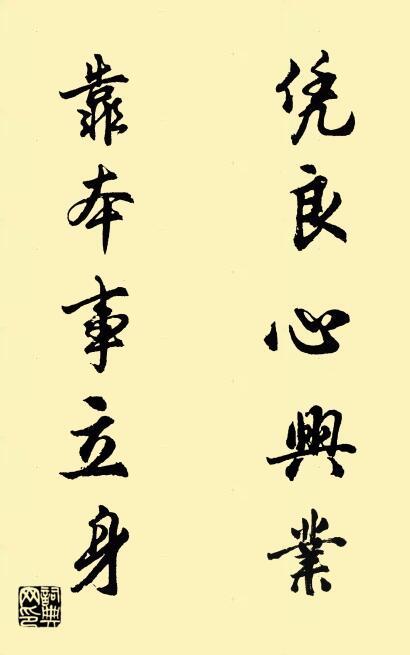 凭良心興業
靠本事立身
詞典网印